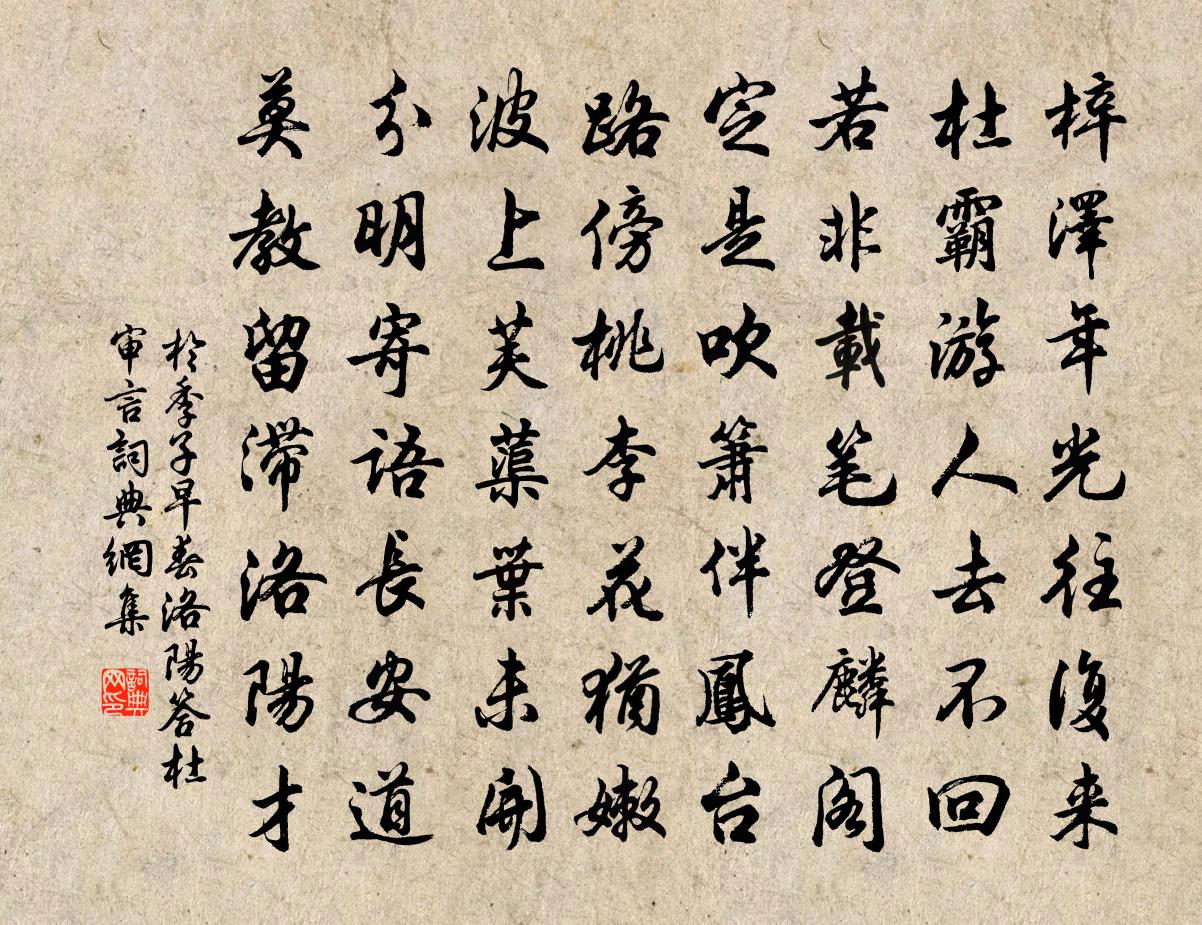 梓澤年光往復来
杜霸游人去不回
若非載笔登麟阁
定是吹簫伴鳳台
路傍桃李花猶嫩
波上芙蕖葉未開
分明寄語長安道
莫教留滯洛陽才
於季子早春洛陽答杜
审言詞典網集
詞典
网印